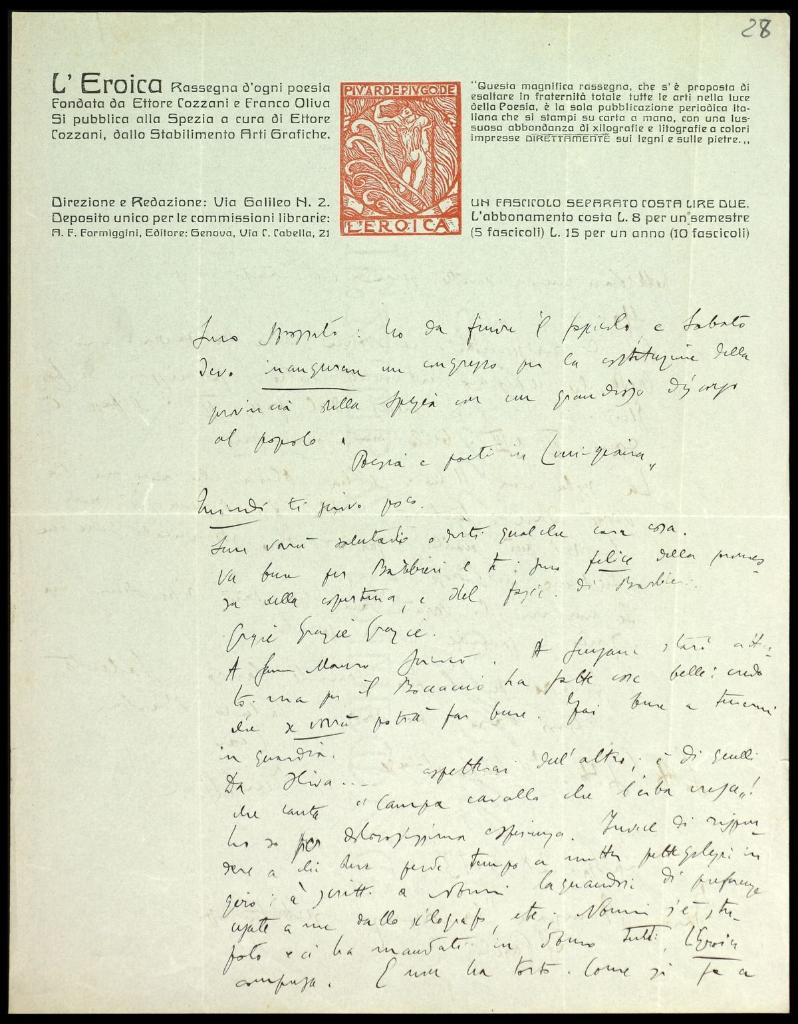 28
L'Eroica Rassegna d'ogni poesia
Fondata da Ettore Cozzani e Franco Oliva
Si pubblica alla Spezia a cura di Ettore
Cozzani, dallo Stabilimento Arti Grafiche.
Direzione e Redazione: Via Galileo N. 2.
Deposito unico per le commissioni librarie:
A. F. Formiggini, Editore: Genova, Via C. Cabella, 21
PIVARDEPIVGODE
L'EROICA
"Questa magnifica rassegna, che s'è proposta di
esaltare in fraternità totale tutte le arti nella luce
della Poesia, è la sola pubblicazione periodica ita-
liana che si stampi su carta a mano, con una lus-
suosa abbondanza di xilografie e litografie a colori
impresse DIRETTAMENTE sui legni e sulle pietre.„
UN FASCICOLO SEPARATO COSTA LIRE DUE.
L'abbonamento costa L. 8 per un semestre
(5 fascicoli) L. 15 per un anno (10 fascicoli)
: ho da finire il fascicolo, e Sabato
devo inaugurare un congresso per la costituzione della
provincia della Spezia con un grandioso discorso
al popolo "
Poesia e poeti in Lunigiana„
Quindi ti scrivo poco.
salutarlo e dirti qualche cara cosa.
Va bene per Barbieri e te: sono felice della promes
sa della copertina, e del fasc. di Barbieri.
Grazie Grazie Grazie.
A San Mauro scriverò. A starò
to. ma per il Boccaccio ha fatte cose belle: credo
che se vorrà potrà far bene. Fai bene a tenerti
in guardia.
Da Oliva.... aspetterai dell'altro; è di quelli
che canta "Campa cavallo che l'erba cresca„!
lo so per dolorosissima esperienza. Invece di rispon
dere a chi deve perde tempo a metter pettegolezzi in
giro: à scritto a Nomi lagnandosi di preferenze
usate a me dallo xilografo, etc; Nomi s'è stu
fato e ci ha mandati in tutti, l'Eroica
compresa. E non ha torto. Come si fa a